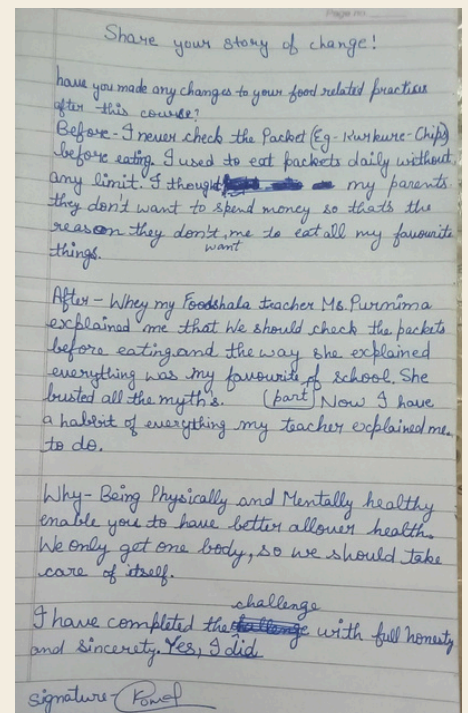 Page No.
Share your story of change!
have you made any changes to your food related practices
after this course?
Before - I never check the Packet (Eg - Kurkure - Chips)
before eating. I used to eat packets daily without
any limit. I thought my parents
they don't want to spend money so that's the
reason they don't want me to eat all my favourite
things.
After - Whey my Foodshala teacher Ms. Purnima
explained me that We should check the packets
before eating. and the way she explained
everything was my favourite part of school. She
busted all the myth's. Now I have
a habbit of everything my teacher explained me.
to do.
Why - Being Physically and Mentally healthy
enable you to have better allover health.
We only get one body, so we should take
care of itself.
I have completed the challenge with full honesty
and sincerety. Yes, I did
signature -